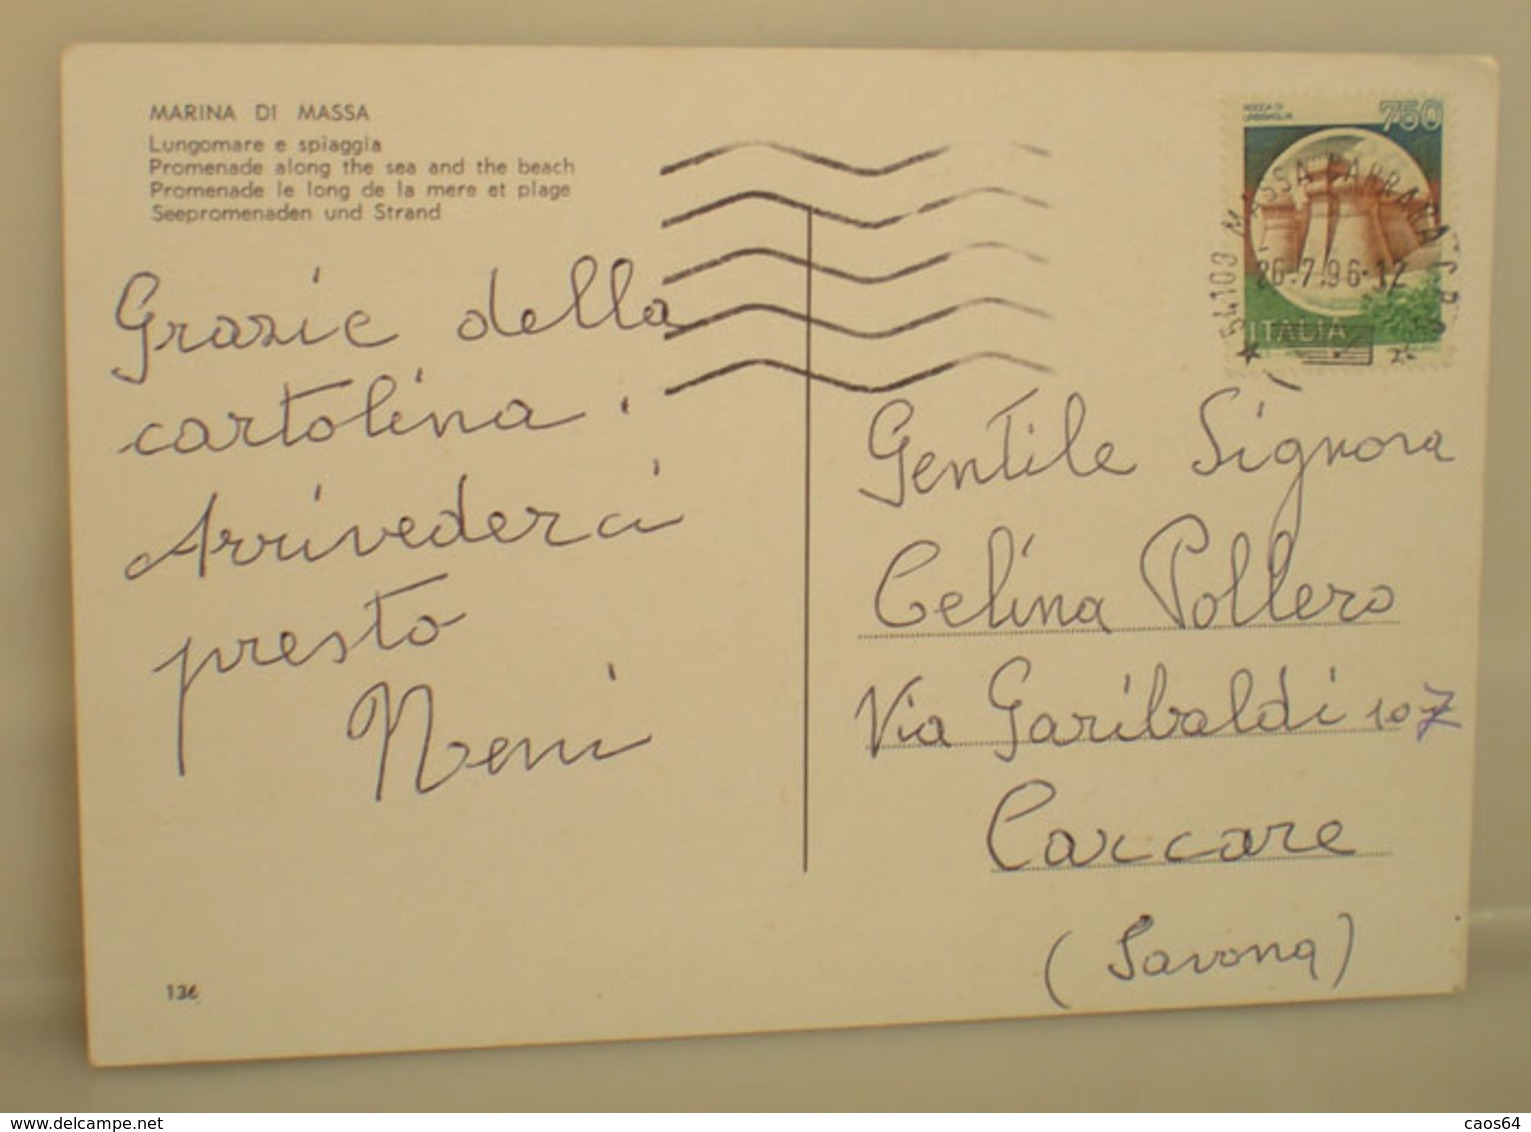 MARINA DI MASSA
Lungomare e spiaggia
Promenade along the sea and the beach
Promenade le long de la mere et plage
Seepromenaden und Strand
Grazie della
cartolina.
Arrivederci
presto
Neni
136
ROCCA DI
URBISAGLIA
750
54100 MASSA CARRARA C.P.
26.7.96-12
ITALIA
Gentile Signora
Celina Pollero
Via Garibaldi 107
Carcare
(Savona)
www.delcampe.net
caos64